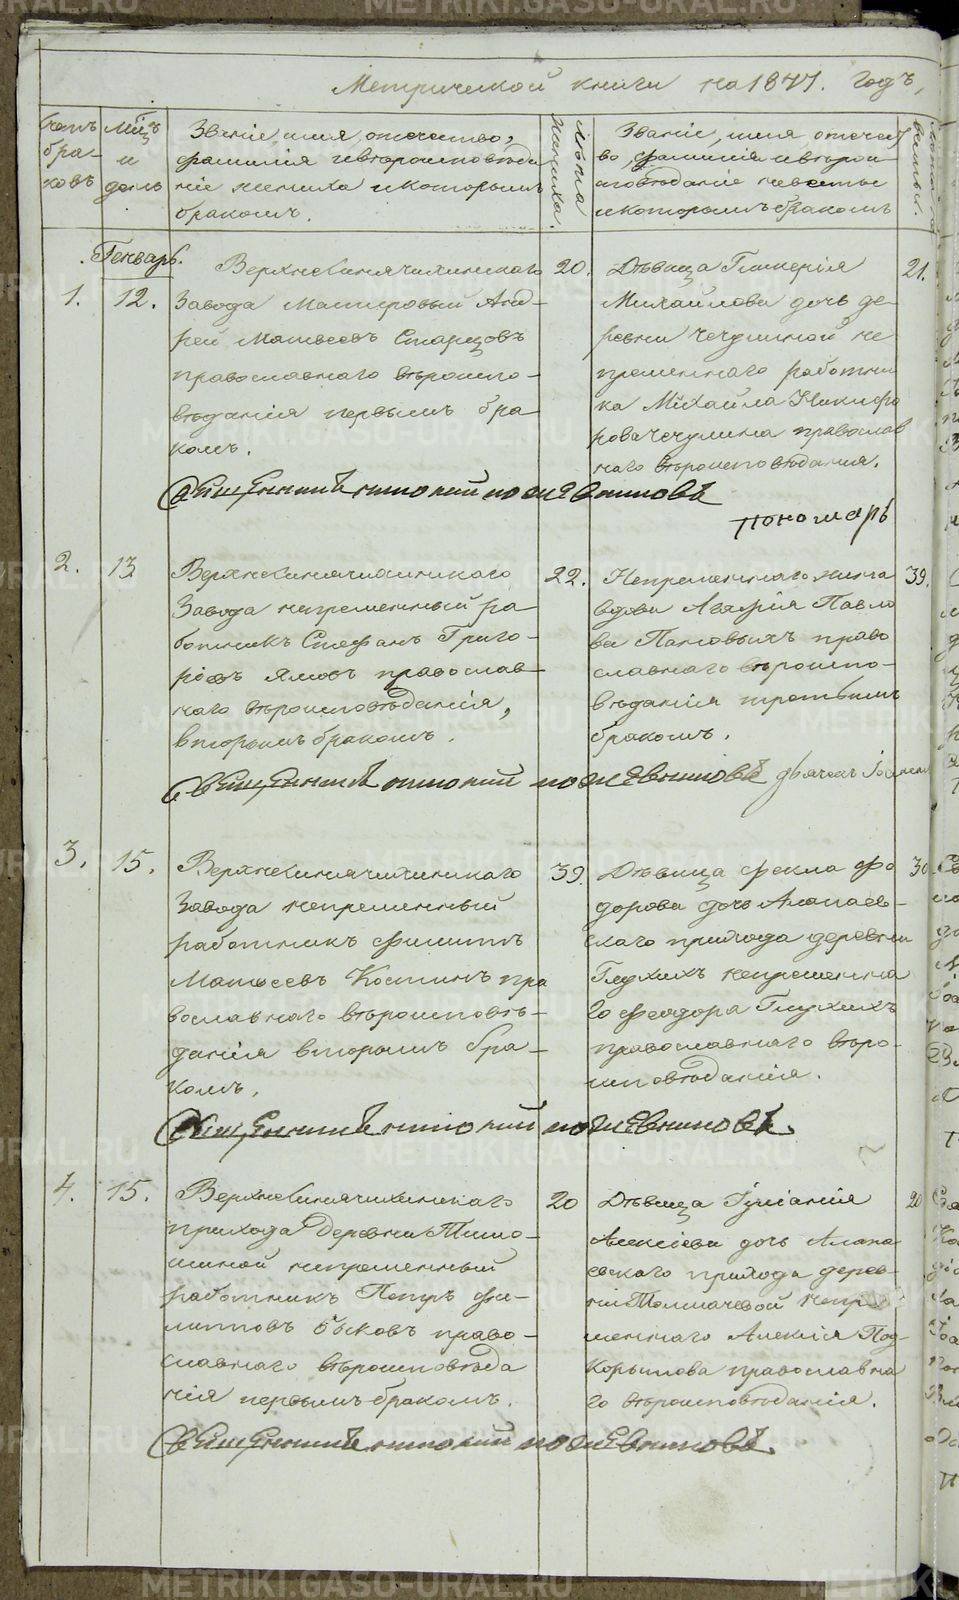 Метрической книги на 1841. годъ,
Счетъ бра-ковъ
Мѣсцъ и день
Званіе, имя, отчество,
фамилія и вѣроисповѣда
ніе жениха и которымъ
бракомъ.
Лѣта жениха.
Званіе, имя, отечест
во, фамилія и вѣрои
сповѣданіе невѣсты
и которымъ бракомъ
Генварь.
1.
12.
Верхнесинячихинскаго
Завода Мастеровый Анд-
рей Матвеевъ Старцовъ
православнаго вѣроиспо-
вѣданія первымъ бра-
комъ.
20.
Дѣвица Гликерія
Михайлова дочь де-
ревни Чечулиной не
пременнаго работни
ка Михайла Никифо
рова Чечулина православ
наго вѣроисповѣданія.
21.
Священникъ николай ножевниковъ
пономарь
2.
13
Верхнесинячихинскаго
Завода непременный ра-
ботникъ Стефанъ Григо-
рьевъ Ямовъ православ-
наго вѣроисповѣданія,
вторымъ бракомъ.
22.
Непременнаго
вдова Агафія Павло
ва Пановыхъ право
славнаго вѣроиспо-
вѣданія третьимъ
бракомъ.
39.
Священникъ николай ножевниковъ дьячекъ
3.
15.
Верхнесинячихинскаго
Завода непременный
работникъ Филиппъ
Матвеевъ Костинъ пра
вославнаго вѣроисповѣ-
данія вторымъ бра-
комъ.
39.
Дѣвица Фекла Фе
дорова дочь Алапаев-
скаго прихода деревни
Глухихъ непременна
го Феодора Глухихъ
православнаго вѣро-
исповѣданія.
30.
Священникъ николай ножевниковъ.
4.
15.
Верхнесинячихинскаго
прихода деревни Тимо-
шиной непременный
работникъ Петръ Фи-
липповъ Быковъ право-
славнаго вѣроисповѣда
нія первымъ бракомъ.
20
Дѣвица Іуліанія
Алексіева дочь Алапа
евскаго прихода дерев-
ни Толмачевой непре
меннаго Алексія Под-
корытова православна
го вѣроисповѣданія.
20
Священникъ николай ножевниковъ.
METRIKI.GASO-URAL.RU